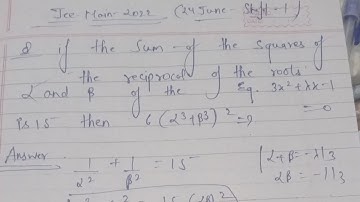 Jee Main 2022 (24 June - Shift - 1)
Q if the Sum of the Squares of
the reciprocal of the roots
α and β of the Eq. 3x² + λx - 1
= 0
is 15 then 6 (α³+β³)² = ?
Answer
1/α² + 1/β² = 15
α+β = -λ/3
αβ = -1/3